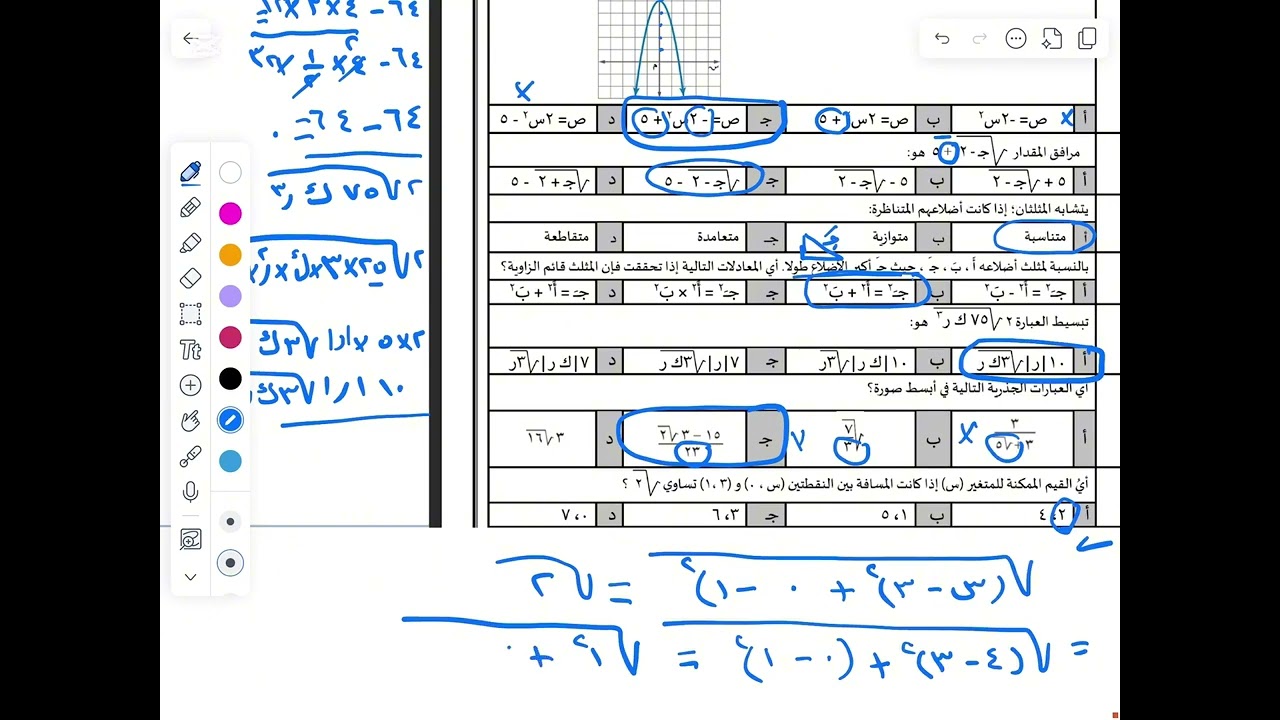 أ ص= -٢س٢ ب ص= ٢س٢ + ٥ جـ ص= -٢س٢ + ٥ د ص= ٢س٢ - ٥
مرافق المقدار √جـ - ٢ + ٥ هو:
أ ٥ + √جـ - ٢ ب ٥ - √جـ - ٢ جـ √جـ - ٢ - ٥ د √جـ + ٢ - ٥
يتشابه المثلثان؛ إذا كانت أضلاعهم المتناظرة:
أ متناسبة ب متوازية جـ متعامدة د متقاطعة
بالنسبة لمثلث أضلاعه أَ ، بَ ، جـَ ، حيث جـَ أكبر الأضلاع طولا. أي المعادلات التالية إذا تحققت فإن المثلث قائم الزاوية؟
أ جـَ٢ = أَ٢ - بَ٢ ب جـَ٢ = أَ٢ + بَ٢ جـ جـَ٢ = أَ٢ × بَ٢ د جـَ = أَ٢ + بَ٢
تبسيط العبارة ٢√٧٥ ك ر٣ هو:
أ ١٠|ر|√٣ك ر ب ١٠|ك ر|√٣ر جـ ٧|ر|√٣ك ر د ٧|ك ر|√٣ر
أي العبارات الجذرية التالية في أبسط صورة؟
أ ٣/(٣+√٥) ب √٧/√٢٣ جـ (١٥ - ٣√٢)/٢٣ د ٣√١٦
أيُ القيم الممكنة للمتغير (س) إذا كانت المسافة بين النقطتين (س ، ٠) و (١،٣) تساوي √٢ ؟
أ ٢، ٤ ب ١، ٥ جـ ٣، ٦ د ٠، ٧
√(س - ٣)٢ + (٠ - ١)٢ = √٢
= √(٤ - ٣)٢ + (٠ - ١)٢ = √١٢ + ٠
٦٤ - ٦٤ = ٠
٢√٧٥ ك ر٣
Tt